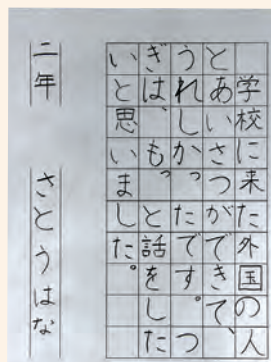 学校に来た外国の人
とあいさつができて、
うれしかったです。つ
ぎは、もっと話をした
いと思いました。
二年　さとうはな